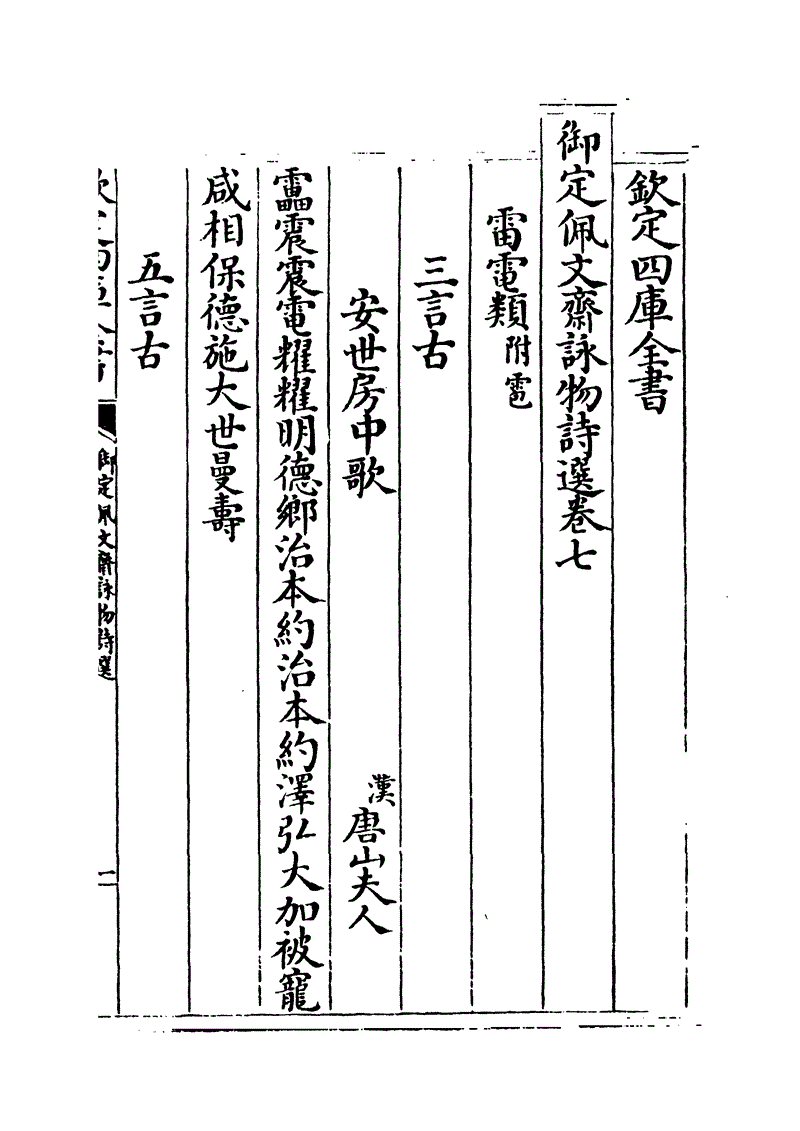 欽定四庫全書
御定佩文齋詠物詩選卷七
雷電類附雹
三言古
安世房中歌 漢唐山夫人
靁震震電耀耀明德鄉治本約治本約澤弘大加被寵
咸相保德施大世曼壽
五言古
御定佩文齋詠物詩選